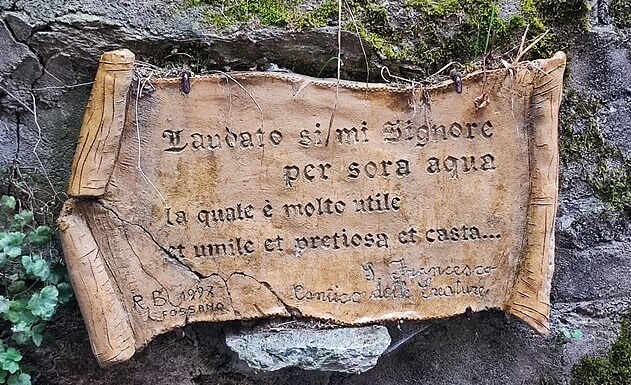 Laudato si mi Signore
per sora aqua
la quale è molto utile
et umile et pretiosa et casta...
S. Francesco
Cantico delle Creature
R BL 1997
FOSSANO